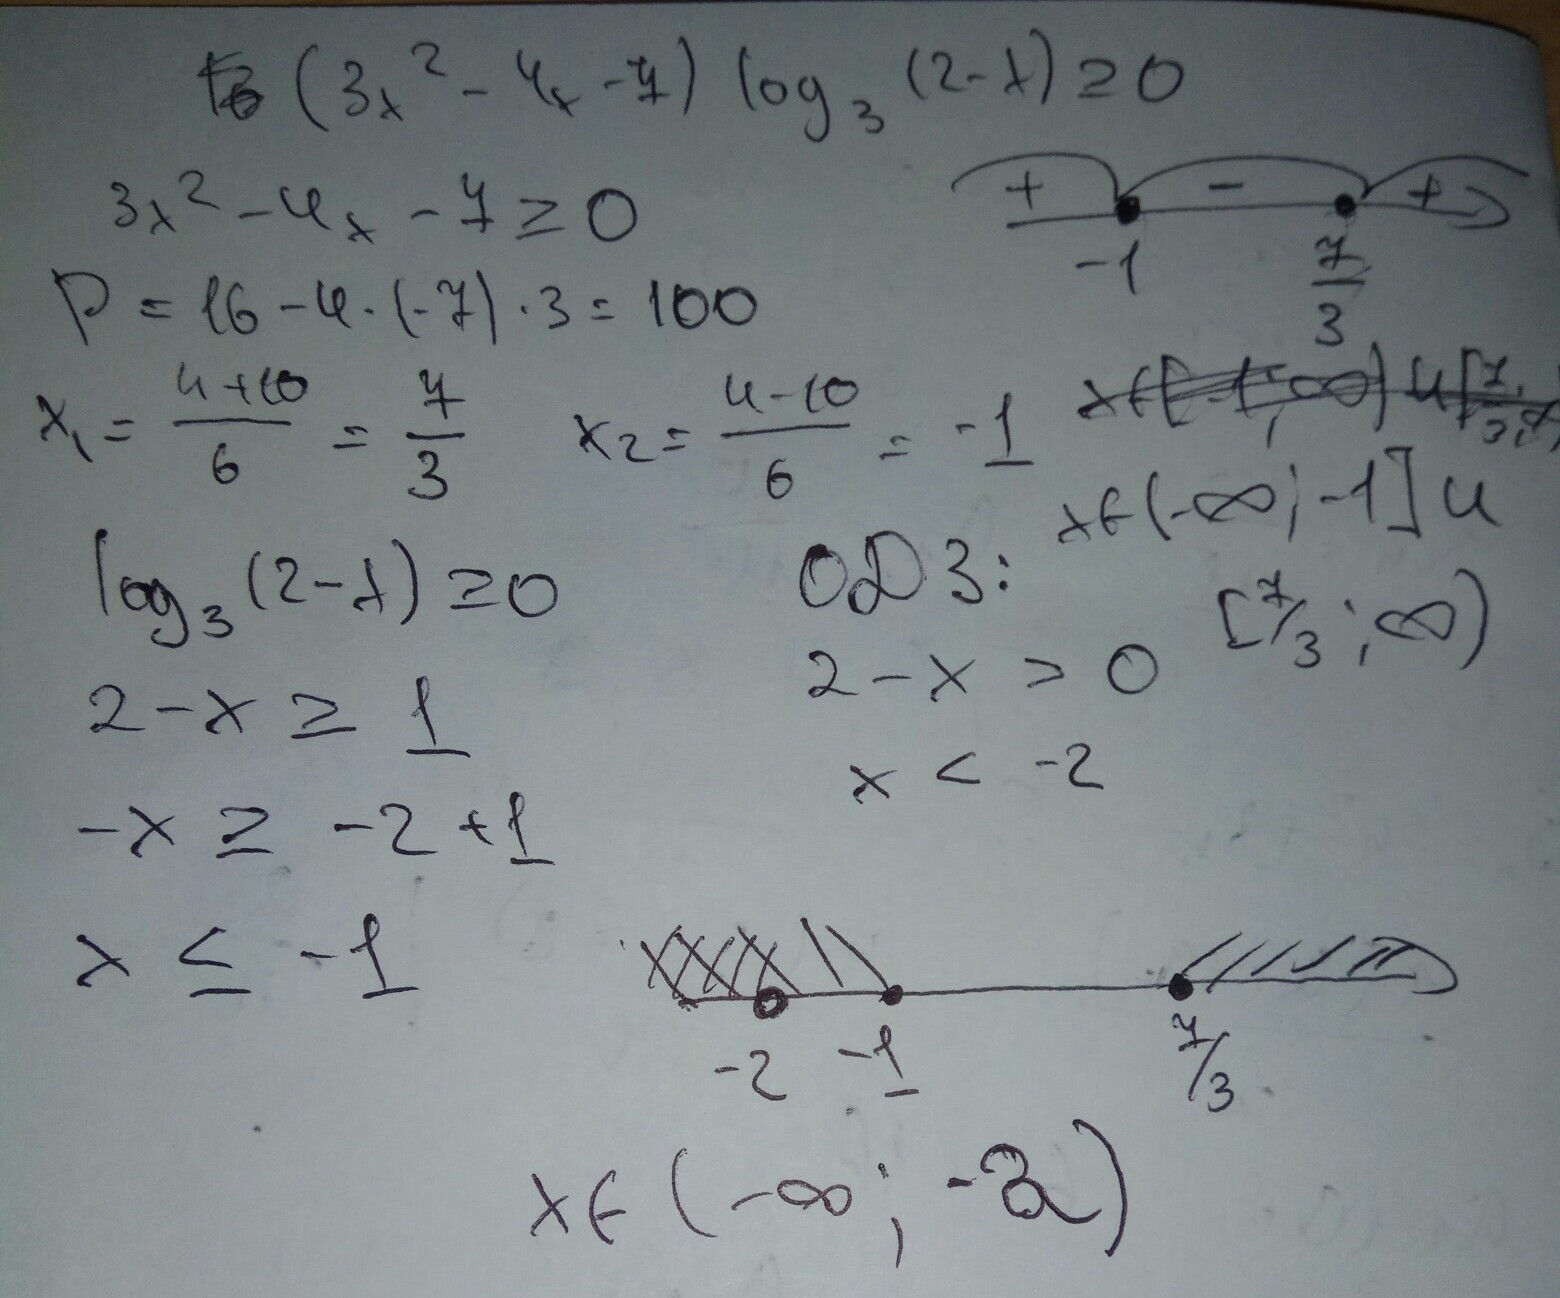 (3x² - 4x - 7) log₃ (2-x) ≥ 0
3x² - 4x - 7 ≥ 0
+ - +
-1 7/3
D = 16 - 4·(-7)·3 = 100
x₁ = (4+10)/6 = 7/3 x₂ = (4-10)/6 = -1
x∈(-∞; -1] ∪
[7/3; ∞)
log₃ (2-x) ≥ 0
2-x ≥ 1
-x ≥ -2+1
x ≤ -1
ОДЗ:
2-x > 0
x < -2
-2 -1 7/3
x∈(-∞; -2)